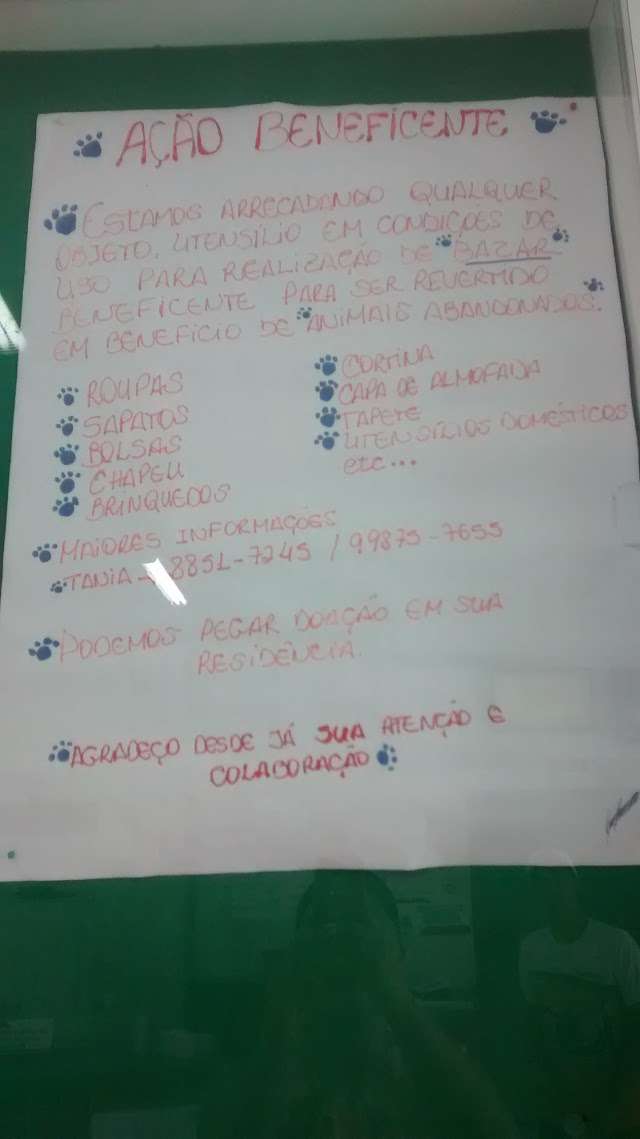 AÇÃO BENEFICENTE
ESTAMOS ARRECADANDO QUALQUER
OBJETO, UTENSÍLIO EM CONDIÇÕES DE
USO PARA REALIZAÇÃO DE BAZAR
BENEFICENTE PARA SER REVERTIDO
EM BENEFÍCIO DE ANIMAIS ABANDONADOS.
ROUPAS
SAPATOS
BOLSAS
CHAPEU
BRINQUEDOS
CORTINA
CAPA DE ALMOFADA
TAPETE
UTENSÍLIOS DOMÉSTICOS
etc...
MAIORES INFORMAÇÕES
TANIA → 8851-7245 / 99875-7655
PODEMOS PEGAR DOAÇÃO EM SUA
RESIDÊNCIA.
AGRADEÇO DESDE JÁ SUA ATENÇÃO E
COLABORAÇÃO